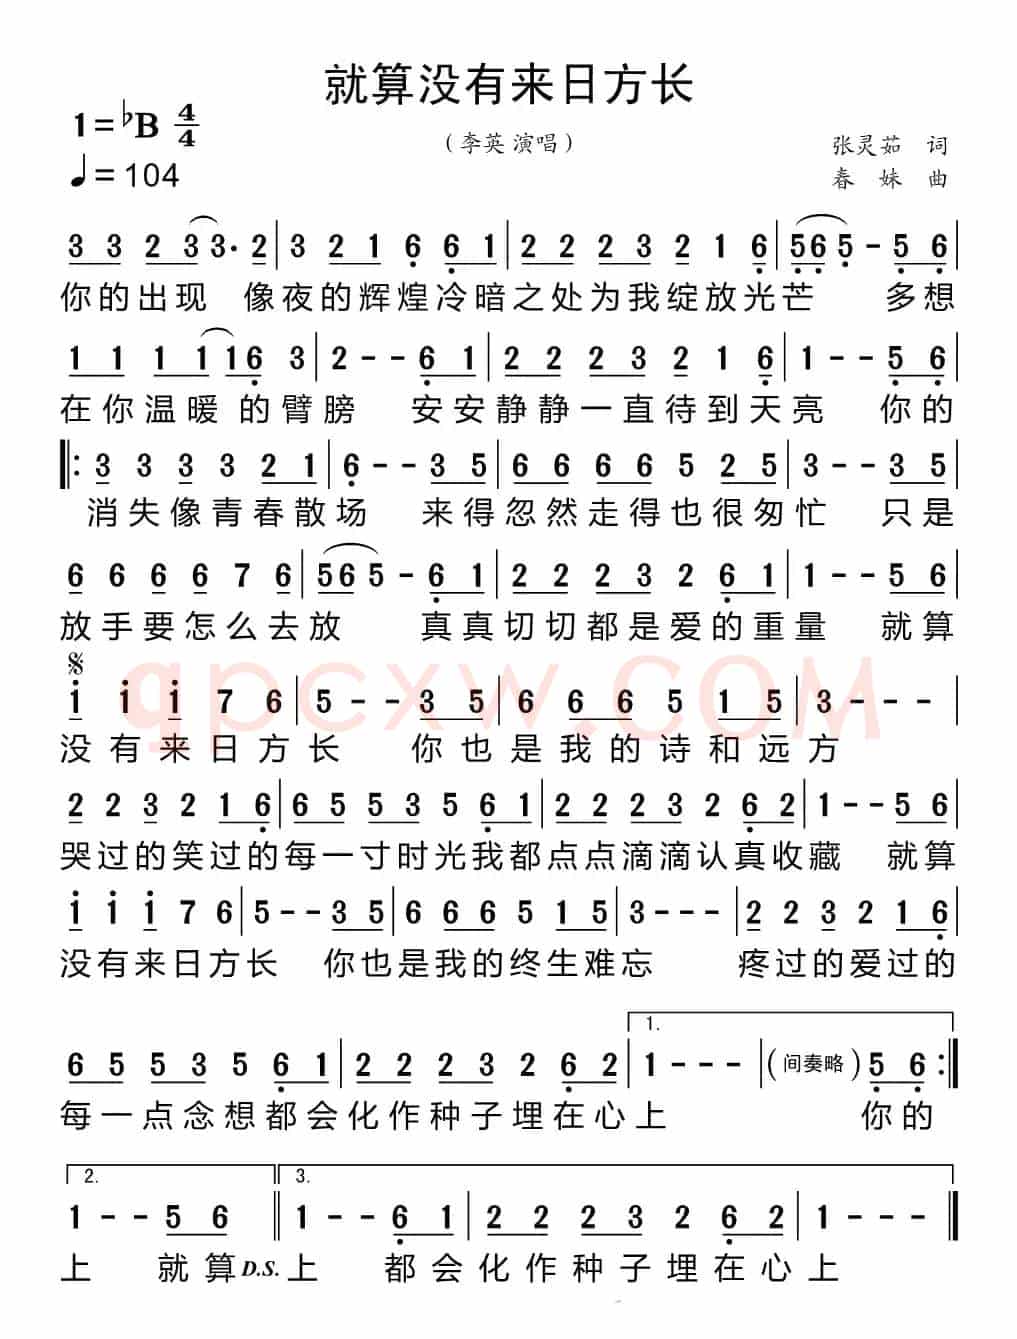 就算没有来日方长
（李英 演唱）
1=♭B 4/4
♩=104
张灵茹 词
春 妹 曲
3 3 2 3 3· 2 | 3 2 1 6 6 1 | 2 2 2 3 2 1 6 | 5 6 5 - 5 6 |
你的出现 像夜的辉煌冷暗之处为我绽放光芒 多想
1 1 1 1 1 6 3 | 2 - - 6 1 | 2 2 2 3 2 1 6 | 1 - - 5 6 |
在你温暖的臂膀 安安静静一直待到天亮 你的
‖: 3 3 3 3 2 1 | 6 - - 3 5 | 6 6 6 6 5 2 5 | 3 - - 3 5 |
消失像青春散场 来得忽然走得也很匆忙 只是
6 6 6 6 7 6 | 5 6 5 - 6 1 | 2 2 2 3 2 6 1 | 1 - - 5 6 |
放手要怎么去放 真真切切都是爱的重量 就算
qpcxw.COM
1 1 1 7 6 | 5 - - 3 5 | 6 6 6 5 1 5 | 3 - - - |
没有来日方长 你也是我的诗和远方
2 2 3 2 1 6 | 6 5 5 3 5 6 1 | 2 2 2 3 2 6 2 | 1 - - 5 6 |
哭过的笑过的每一寸时光我都点点滴滴认真收藏 就算
1 1 1 7 6 | 5 - - 3 5 | 6 6 6 5 1 5 | 3 - - - | 2 2 3 2 1 6 |
没有来日方长 你也是我的终生难忘 疼过的爱过的
1.
6 5 5 3 5 6 1 | 2 2 2 3 2 6 2 | 1 - - - | （间奏略） 5 6 :‖
每一点念想都会化作种子埋在心上 你的
2. 3.
1 - - 5 6 ‖ 1 - - 6 1 | 2 2 2 3 2 6 2 | 1 - - - ‖
上 就算 D.S. 上 都会化作种子埋在心上